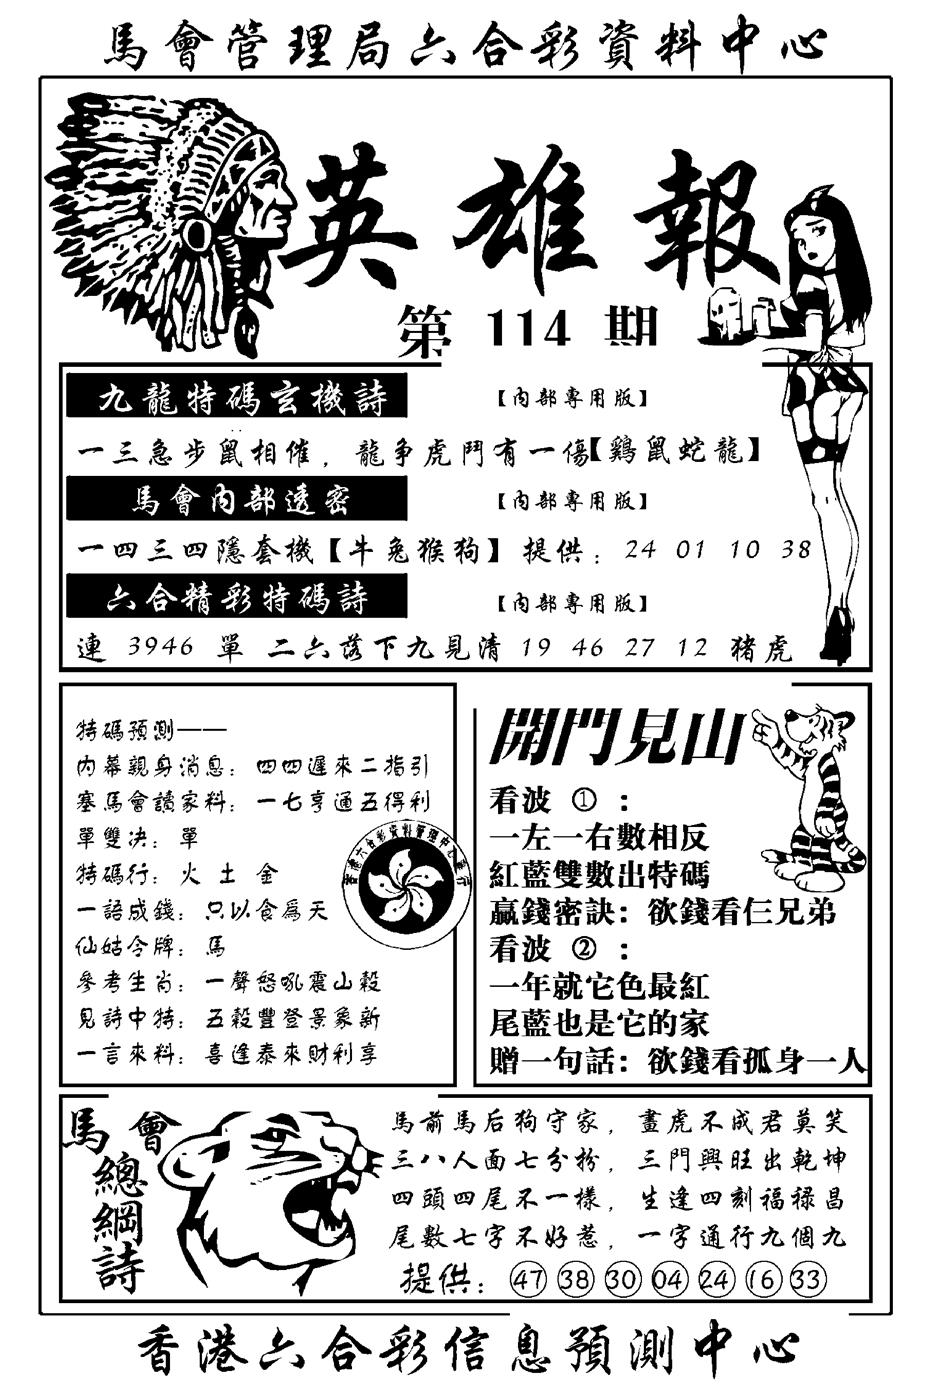 馬會管理局六合彩資料中心
英雄報
第 114 期
九龍特碼玄機詩 【內部專用版】
一三急步鼠相催，龍争虎鬥有一傷【鷄鼠蛇龍】
馬會内部透密 【內部專用版】
一四三四隱套機【牛兔猴狗】 提供：24 01 10 38
六合精彩特碼詩 【內部專用版】
連 3946 單 二六落下九見清 19 46 27 12 猪虎
特碼預測——
内幕親身消息：四四遲來二指引
塞馬會讀家料：一七亨通五得利
單雙决：單
特碼行：火 土 金
一語成錢：只以食爲天
仙姑令牌：馬
參考生肖：一聲怒吼震山穀
見詩中特：五穀豐登景象新
一言來料：喜逢泰來財利享
香港六合彩資料管理中心發行
開門見山
看波 ① ：
一左一右數相反
紅藍雙數出特碼
贏錢密訣：欲錢看仨兄弟
看波 ② ：
一年就它色最紅
尾藍也是它的家
贈一句話：欲錢看孤身一人
馬會
總綱詩
馬前馬后狗守家，畫虎不成君莫笑
三八人面七分扮，三門興旺出乾坤
四頭四尾不一樣，生逢四刻福禄昌
尾數七字不好惹，一字通行九個九
提供：㊼ ㊳ ㉚ 04 ㉔ ⑯ ㉝
香港六合彩信息預測中心